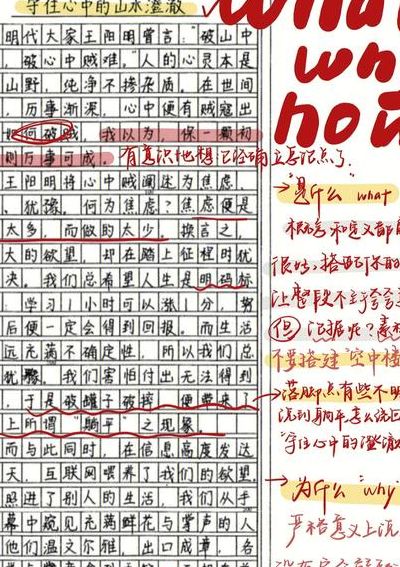 守住心中的山水澄澈
明代大家王阳明曾言:"破山中
,破心中贼难。"人的心灵本是
山野,纯净不掺杂质。在世间
,历事渐深,心中便有贼寇出
如何破贼,我以为,保一颗初
则万事可成
王阳明将心中贼阐述为焦虑,
、犹豫。何为焦虑?焦虑便是
太多,而做的太少。换言之,
大的欲望,却在踏上征程时犹
决。我们总希望人生是明码标
,学习1小时可以涨1分,努
后便一定会得到回报。而生活
远充满不确定性,所以我们总
犹豫。我们害怕付出无法得到
,于是破罐子破摔,便带来了
上所谓"躺平"之现象。
而与此同时,在信息高度发达
天,互联网喂养了我们的欲望
照进了别人的生活,我们从手
幕中窥见充满鲜花与掌声的人
他们温文尔雅,出口成章,各
what
why
how
有意识地想
立意论点了
是什么 what
概念和定义都
很好,搭配你的
让整段不
但 论据呢?素
不要搭建"空中楼
落脚点有些不明
说到躺平怎么绕回
"守住心中的澄澈
为什么"why
严格意义上说